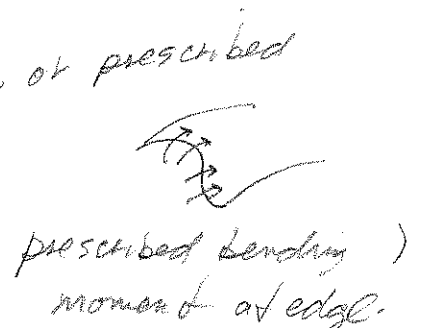 , or prescribed
prescribed bending )
moment at edge.